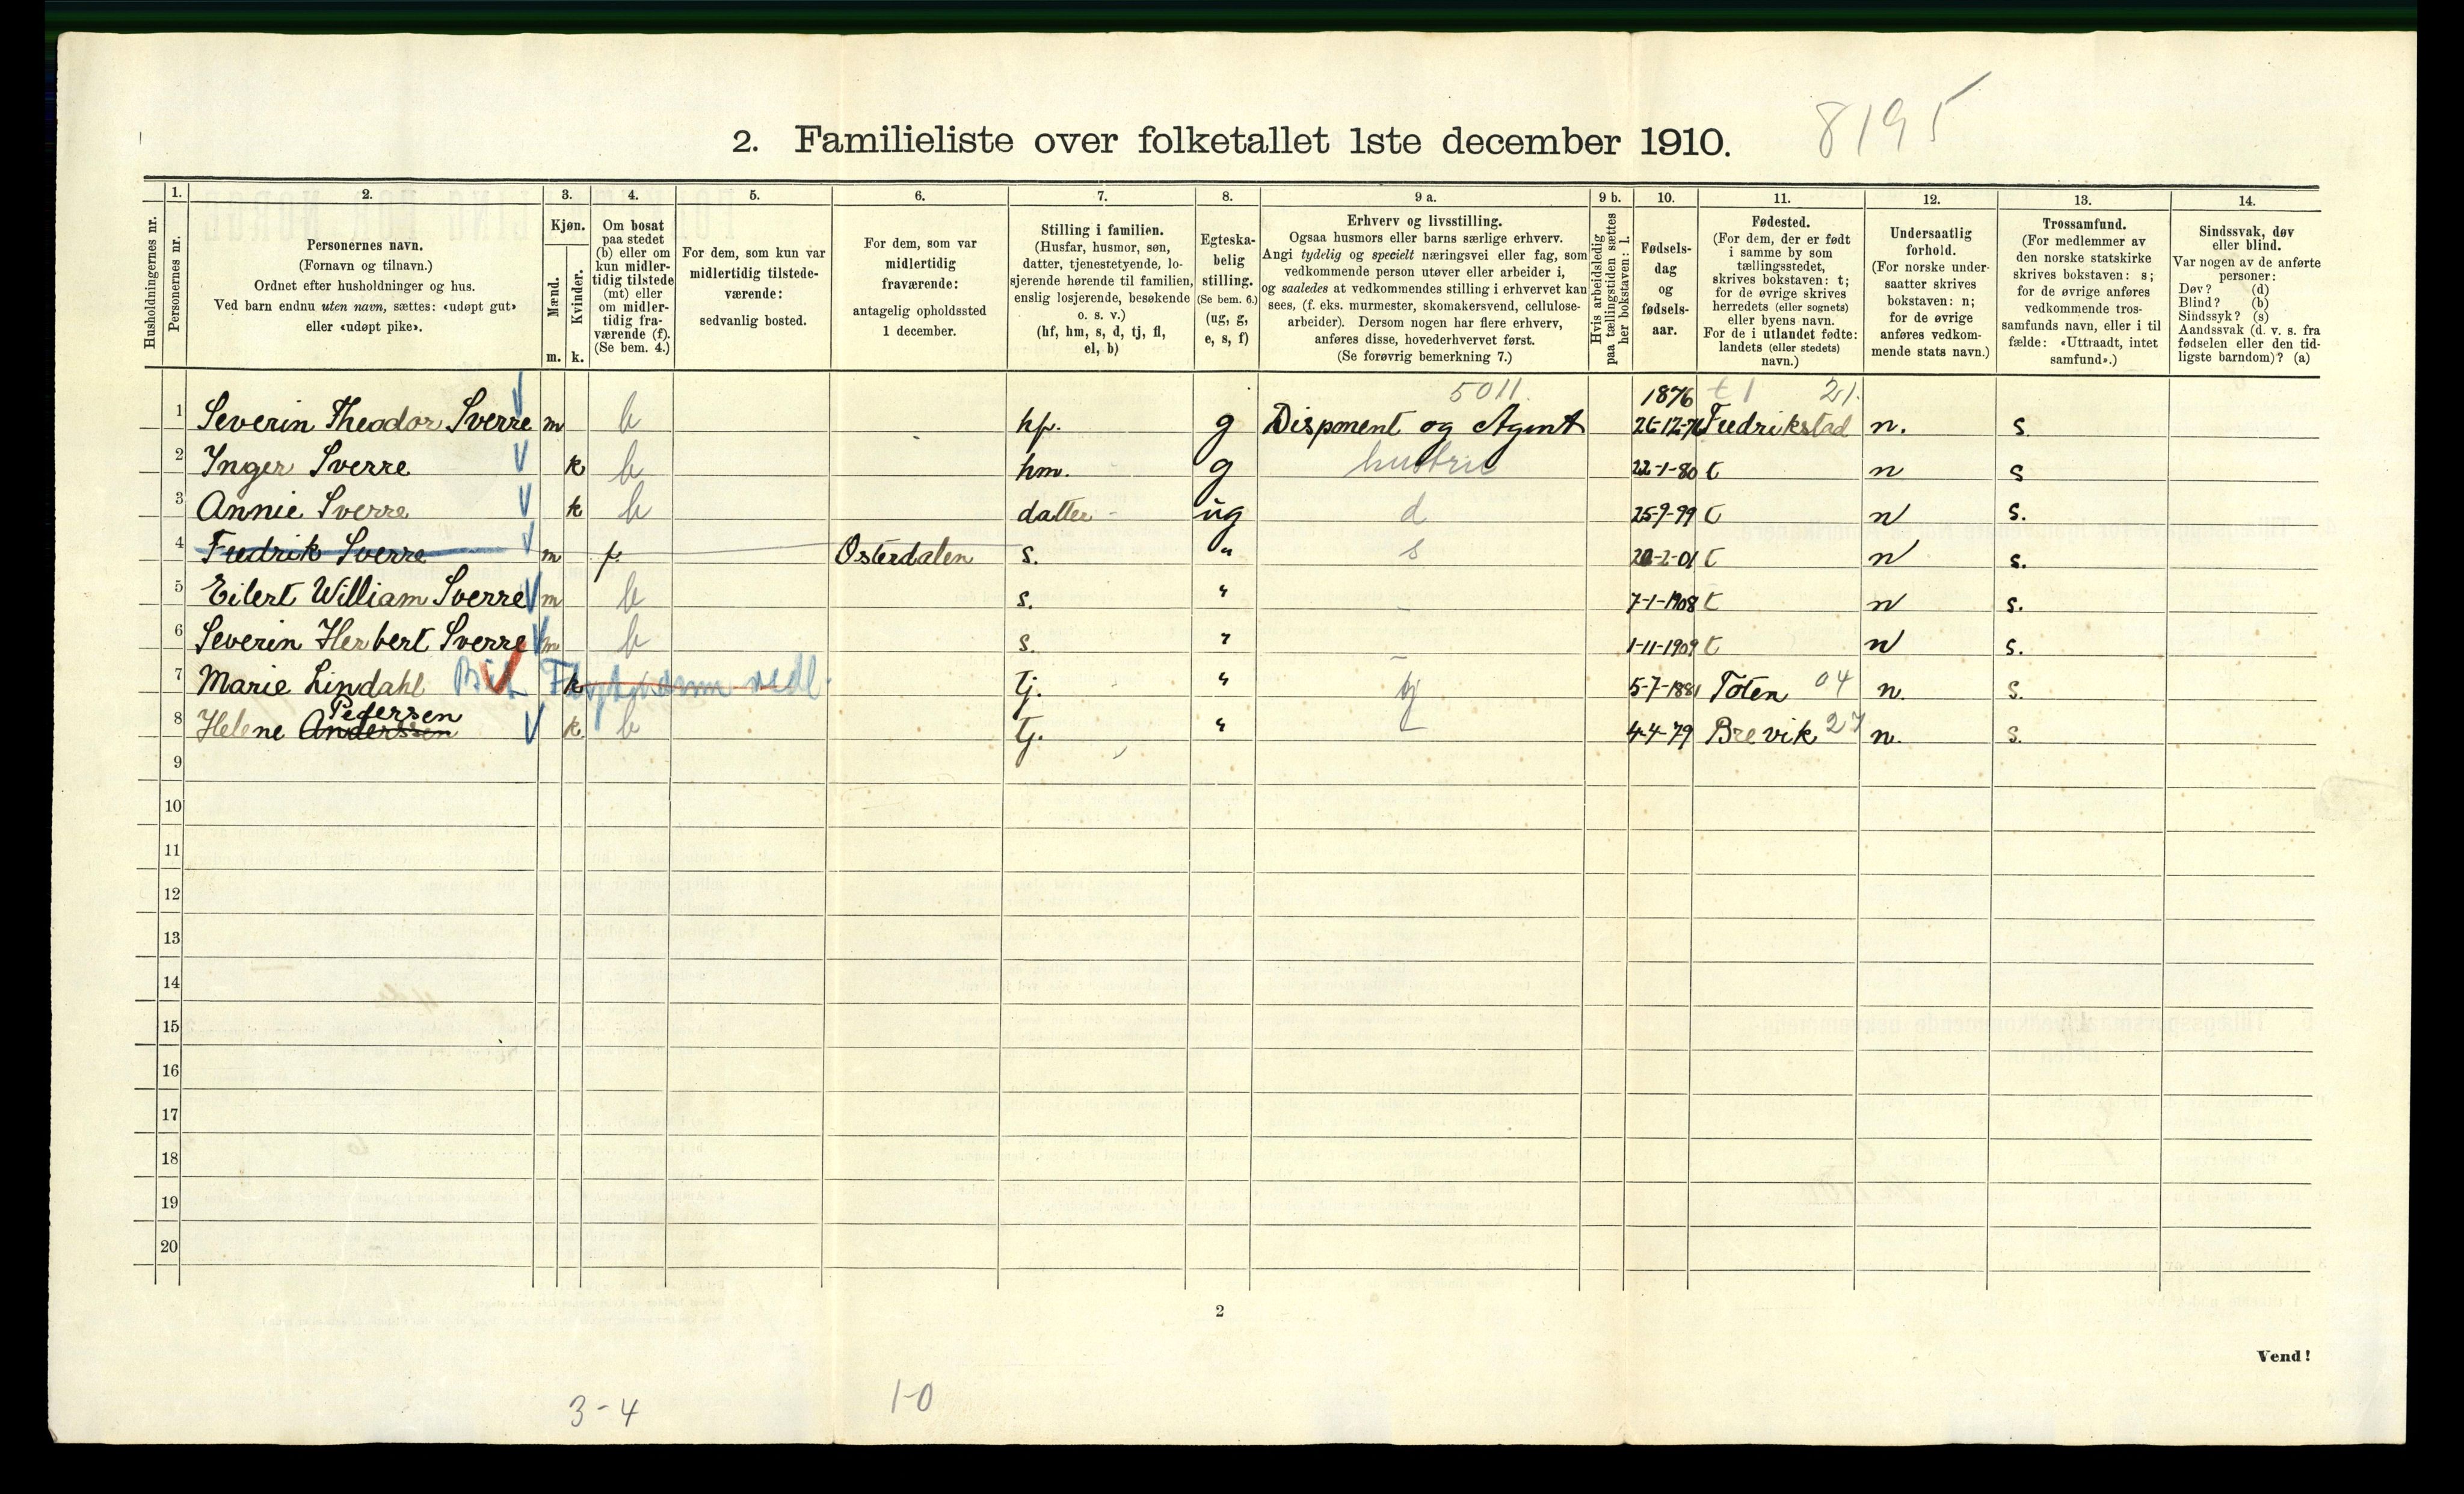 2. Familieliste over folketallet 1ste december 1910. 8195
Husholdningernes nr.
1. Personernes nr.
2. Personernes navn.
(Fornavn og tilnavn.)
Ordnet efter husholdninger og hus.
Ved barn endnu uten navn, sættes: «udøpt gut»
eller «udøpt pike».
3. Kjøn.
Mænd. m.
Kvinder. k.
4. Om bosat
paa stedet
(b) eller om
kun midler-
tidig tilstede
(mt) eller
om midler-
tidig fra-
værende (f).
(Se bem. 4.)
5. For dem, som kun var
midlertidig tilstede-
værende:
sedvanlig bosted.
6. For dem, som var
midlertidig
fraværende:
antagelig opholdssted
1 december.
7. Stilling i familien.
(Husfar, husmor, søn,
datter, tjenestetyende, lo-
sjerende hørende til familien,
enslig losjerende, besøkende
o. s. v.)
(hf, hm, s, d, tj, fl,
el, b)
8. Egteska-
belig
stilling.
(Se bem. 6.)
(ug, g,
e, s, f)
9 a. Erhverv og livsstilling.
Ogsaa husmors eller barns særlige erhverv.
Angi tydelig og specielt næringsvei eller fag, som
vedkommende person utøver eller arbeider i,
og saaledes at vedkommendes stilling i erhvervet kan
sees, (f. eks. murmester, skomakersvend, cellulose-
arbeider). Dersom nogen har flere erhverv,
anføres disse, hovederhvervet først.
(Se forøvrig bemerkning 7.)
9 b. Hvis arbeidsledig
paa tællingstiden sættes
her bokstaven: l.
10. Fødsels-
dag
og
fødsels-
aar.
11. Fødested.
(For dem, der er født
i samme by som
tællingsstedet,
skrives bokstaven: t;
for de øvrige skrives
herredets (eller sognets)
eller byens navn.
For de i utlandet fødte:
landets (eller stedets)
navn.)
12. Undersaatlig
forhold.
(For norske under-
saatter skrives
bokstaven: n;
for de øvrige
anføres vedkom-
mende stats navn.)
13. Trossamfund.
(For medlemmer av
den norske statskirke
skrives bokstaven: s;
for de øvrige anføres
vedkommende tros-
samfunds navn, eller i til
fælde: «Uttraadt, intet
samfund».)
14. Sindssvak, døv
eller blind.
Var nogen av de anførte
personer:
Døv? (d)
Blind? (b)
Sindssyk? (s)
Aandssvak (d. v. s. fra
fødselen eller den tid-
ligste barndom)? (a)
5011. 1876 t 1 21.
1 Severin Theodor Sverre m b hf. g Dispment og Agent 26-12-76 Fredrikstad n. s.
2 Inger Sverre k b hm. g hustru 22-1-80 t n s
3 Annie Sverre k b datter - ug d 25-9-99 t n s.
4 Fredrik Sverre m f. Osterdalen s. " s 20-2-01 t n s.
5 Eilert William Sverre m b s. " - 7-1-1908 t n s.
6 Severin Herbert Sverre m b s. " - 1-11-1909 t n s.
7 Marie Lindahl k Tj. " tj 5-7-1881 Toten 04 n. s.
Pedersen
8 Helene Anderssen k. b Tj. " 4-4-79 Brevik 27 n. s.
9
10
11
12
13
14
15
16
17
18
19
20
2
Vend!
3-4 1-0